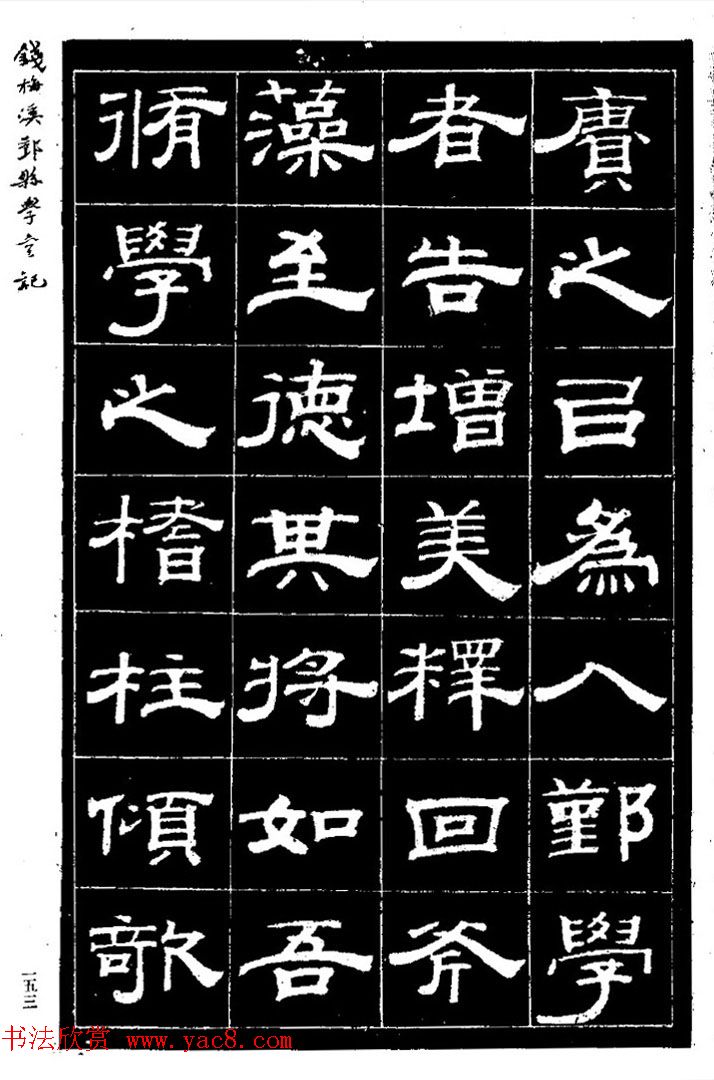 賡之㠯為入鄞學
者告增美釋回斧
藻至德其將如吾
脩學之榰柱傾欹
錢梅溪鄞縣學宮記
一五三
书法欣赏 www.yac8.com